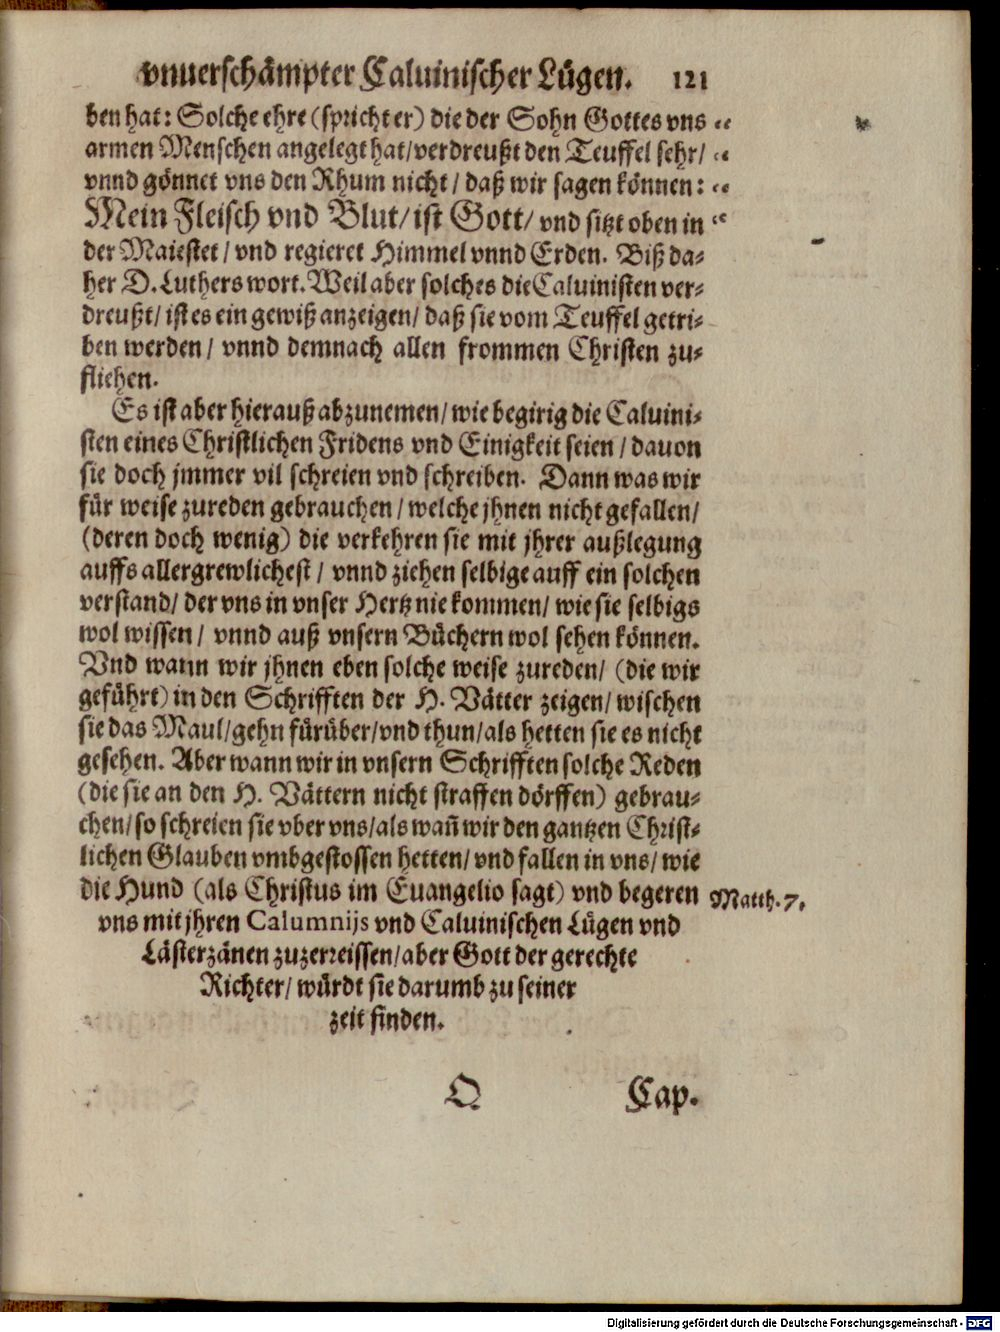 vnuerschämpter Caluinischer Lügen. 121
ben hat: Solche ehre (spricht er) die der Sohn Gottes vns “
armen Menschen angelegt hat/ verdreußt den Teuffel sehr/ “
vnnd gönnet vns den Rhum nicht/ daß wir sagen können: “
Mein Fleisch vnd Blut/ ist Gott/ vnd sitzt oben in “
der Maiestet/ vnd regieret Himmel vnnd Erden. Biß da-
her D. Luthers wort. Weil aber solches die Caluinisten ver-
dreußt/ ist es ein gewiß anzeigen/ daß sie vom Teuffel getri-
ben werden/ vnnd demnach allen frommen Christen zu-
fliehen.
Es ist aber hierauß abzunemen/ wie begirig die Caluini-
sten eines Christlichen Fridens vnd Einigkeit seien/ dauon
sie doch jmmer vil schreien vnd schreiben. Dann was wir
für weise zureden gebrauchen/ welche jhnen nicht gefallen/
(deren doch wenig) die verkehren sie mit jhrer außlegung
auffs allergrewlichest/ vnnd ziehen selbige auff ein solchen
verstand/ der vns in vnser Hertz nie kommen/ wie sie selbigs
wol wissen/ vnnd auß vnsern Büchern wol sehen können.
Vnd wann wir jhnen eben solche weise zureden/ (die wir
geführt) in den Schrifften der H. Vätter zeigen/ wischen
sie das Maul/ gehn fürüber/ vnd thun/ als hetten sie es nicht
gesehen. Aber wann wir in vnsern Schrifften solche Reden
(die sie an den H. Vättern nicht straffen dörffen) gebrau-
chen/ so schreien sie vber vns/ als wañ wir den gantzen Christ-
lichen Glauben vmbgestossen hetten/ vnd fallen in vns/ wie
die Hund (als Christus im Euangelio sagt) vnd begeren Matth. 7.
vns mit jhren Calumnijs vnd Caluinischen Lügen vnd
Lästerzänen zuzerreissen/ aber Gott der gerechte
Richter/ würdt sie darumb zu seiner
zeit finden.
Q Cap.
Digitalisierung gefördert durch die Deutsche Forschungsgemeinschaft - DFG